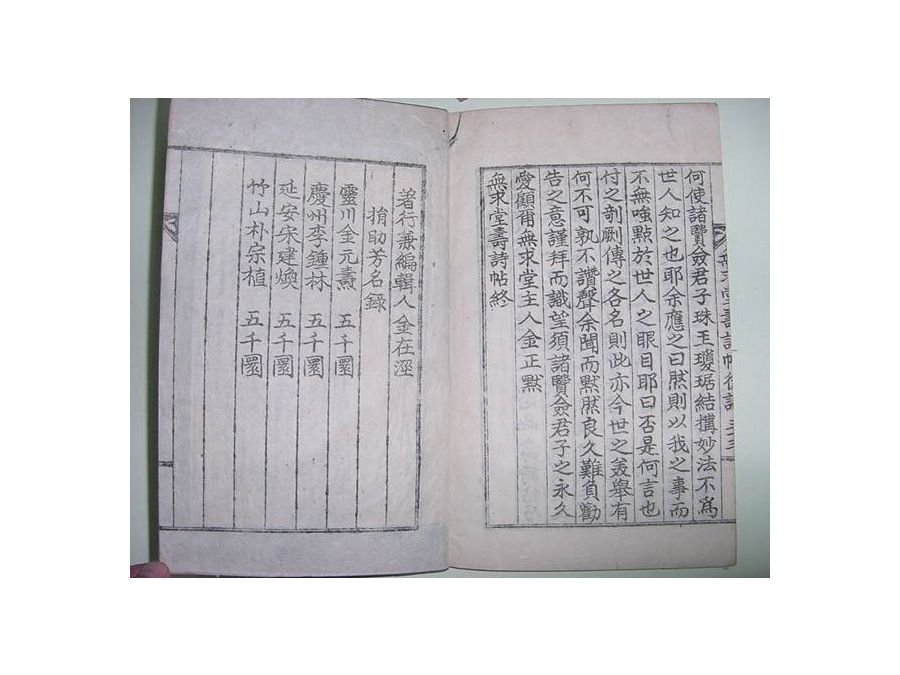 何使諸賢僉君子珠玉瓊琚結搆妙法不爲
世人知之也耶余應之曰然則以我之事而
不無嗤點於世人之眼目耶曰否是何言也
付之剞劂傳之各名則此亦今世之美舉有
何不可孰不讚聲余聞而默默然良久難負勸
告之意謹拜而識望須諸賢僉君子之永久
愛顧甭無求堂主人金正默
無求堂壽詩帖終
無求堂壽詩帖後記
著行兼編輯人 金在涇
捐助芳名錄
靈川金元壽 五千圜
慶州李鍾林 五千圜
延安宋建煥 五千圜
竹山朴宗植 五千圜